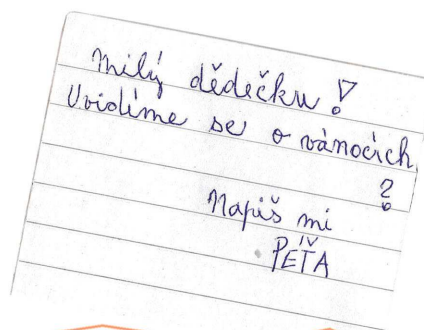 Milý dědečku!
Uvidíme se o vánocích
?
Napiš mi
PÉŤA